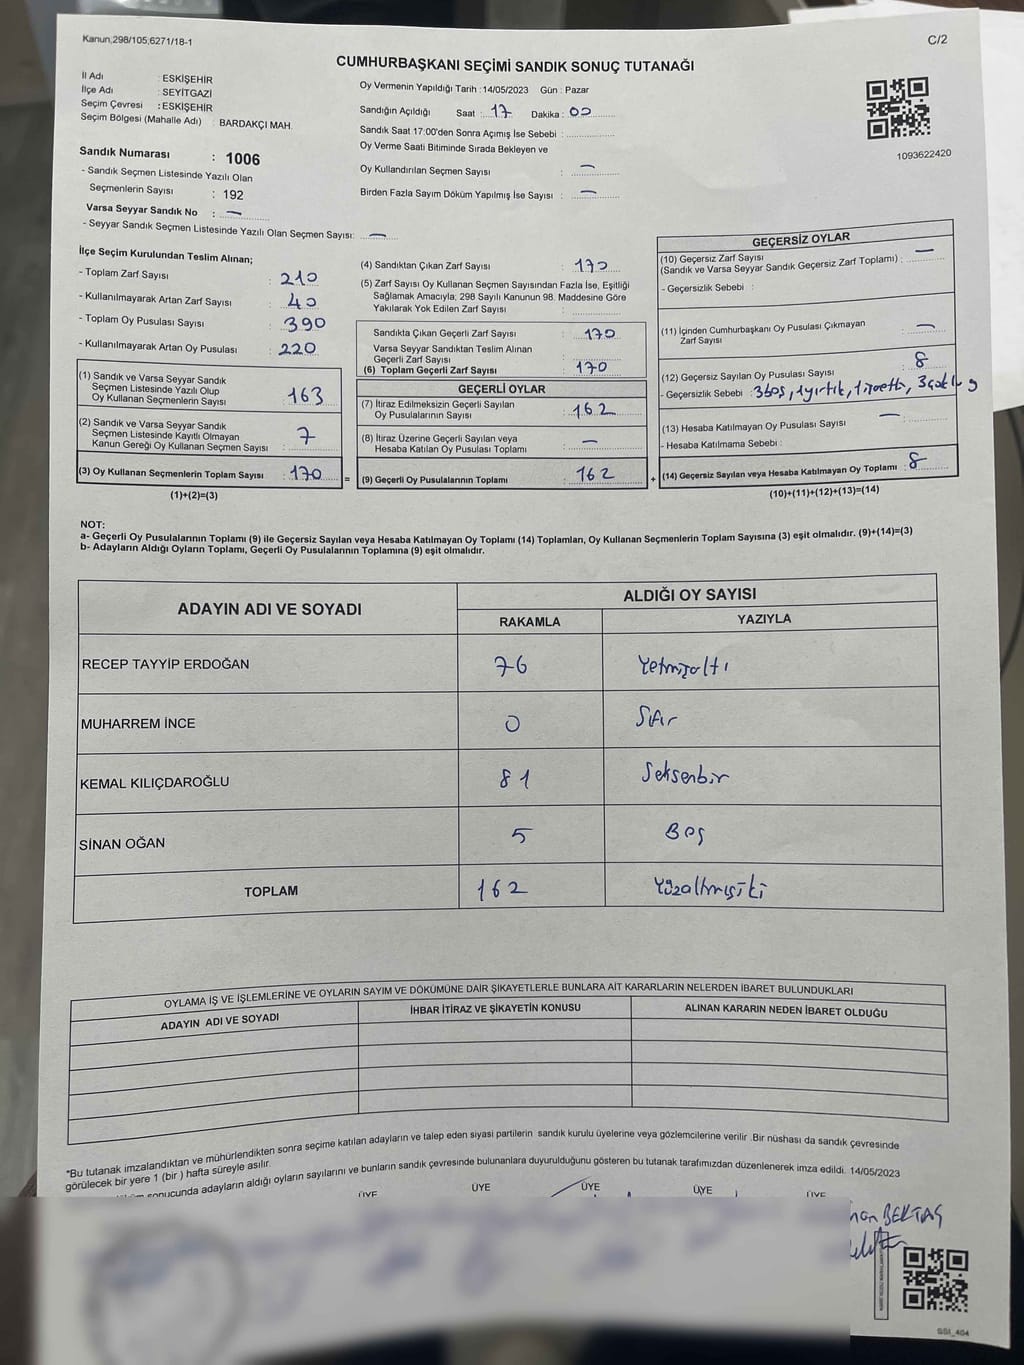 Kanun;298/105;6271/18-1
C/2
CUMHURBAŞKANI SEÇİMİ SANDIK SONUÇ TUTANAĞI
İl Adı : ESKİŞEHİR
İlçe Adı : SEYİTGAZİ
Seçim Çevresi : ESKİŞEHİR
Seçim Bölgesi (Mahalle Adı) : BARDAKÇI MAH.
Sandık Numarası : 1006
- Sandık Seçmen Listesinde Yazılı Olan
Seçmenlerin Sayısı : 192
Varsa Seyyar Sandık No : —
- Seyyar Sandık Seçmen Listesinde Yazılı Olan Seçmen Sayısı: —
Oy Vermenin Yapıldığı Tarih : 14/05/2023 Gün : Pazar
Sandığın Açıldığı Saat : 17 Dakika : 00
Sandık Saat 17:00'den Sonra Açımış İse Sebebi :
Oy Verme Saati Bitiminde Sırada Bekleyen ve
Oy Kullandırılan Seçmen Sayısı : —
Birden Fazla Sayım Döküm Yapılmış İse Sayısı : —
1093622420
İlçe Seçim Kurulundan Teslim Alınan;
- Toplam Zarf Sayısı : 210
- Kullanılmayarak Artan Zarf Sayısı : 40
- Toplam Oy Pusulası Sayısı : 390
- Kullanılmayarak Artan Oy Pusulası : 220
(1) Sandık ve Varsa Seyyar Sandık
Seçmen Listesinde Yazılı Olup
Oy Kullanan Seçmenlerin Sayısı : 163
(2) Sandık ve Varsa Seyyar Sandık
Seçmen Listesinde Kayıtlı Olmayan
Kanun Gereği Oy Kullanan Seçmen Sayısı : 7
(3) Oy Kullanan Seçmenlerin Toplam Sayısı : 170
(1)+(2)=(3)
(4) Sandıktan Çıkan Zarf Sayısı : 170
(5) Zarf Sayısı Oy Kullanan Seçmen Sayısından Fazla İse, Eşitliği
Sağlamak Amacıyla; 298 Sayılı Kanunun 98. Maddesine Göre
Yakılarak Yok Edilen Zarf Sayısı :
Sandıkta Çıkan Geçerli Zarf Sayısı : 170
Varsa Seyyar Sandıktan Teslim Alınan
Geçerli Zarf Sayısı :
(6) Toplam Geçerli Zarf Sayısı : 170
GEÇERLİ OYLAR
(7) İtiraz Edilmeksizin Geçerli Sayılan
Oy Pusulalarının Sayısı : 162
(8) İtiraz Üzerine Geçerli Sayılan veya
Hesaba Katılan Oy Pusulası Toplamı : —
= (9) Geçerli Oy Pusulalarının Toplamı : 162
GEÇERSİZ OYLAR
(10) Geçersiz Zarf Sayısı
(Sandık ve Varsa Seyyar Sandık Geçersiz Zarf Toplamı) : —
- Geçersizlik Sebebi :
(11) İçinden Cumhurbaşkanı Oy Pusulası Çıkmayan
Zarf Sayısı : —
(12) Geçersiz Sayılan Oy Pusulası Sayısı : 8
- Geçersizlik Sebebi : 3boş, 1yırtık,
(13) Hesaba Katılmayan Oy Pusulası Sayısı : —
- Hesaba Katılmama Sebebi :
+ (14) Geçersiz Sayılan veya Hesaba Katılmayan Oy Toplamı : 8
(10)+(11)+(12)+(13)=(14)
NOT:
a- Geçerli Oy Pusulalarının Toplamı (9) ile Geçersiz Sayılan veya Hesaba Katılmayan Oy Toplamı (14) Toplamları, Oy Kullanan Seçmenlerin Toplam Sayısına (3) eşit olmalıdır. (9)+(14)=(3)
b- Adayların Aldığı Oyların Toplamı, Geçerli Oy Pusulalarının Toplamına (9) eşit olmalıdır.
ADAYIN ADI VE SOYADI
ALDIĞI OY SAYISI
RAKAMLA YAZIYLA
RECEP TAYYİP ERDOĞAN 76 Yetmişaltı
MUHARREM İNCE 0 Sıfır
KEMAL KILIÇDAROĞLU 81 Seksenbir
SİNAN OĞAN 5 Beş
TOPLAM 162 Yüzaltmışiki
OYLAMA İŞ VE İŞLEMLERİNE VE OYLARIN SAYIM VE DÖKÜMÜNE DAİR ŞİKAYETLERLE BUNLARA AİT KARARLARIN NELERDEN İBARET BULUNDUKLARI
ADAYIN ADI VE SOYADI
İHBAR İTİRAZ VE ŞİKAYETİN KONUSU
ALINAN KARARIN NEDEN İBARET OLDUĞU
"Bu tutanak imzalandıktan ve mühürlendikten sonra seçime katılan adayların ve talep eden siyasi partilerin sandık kurulu üyelerine veya gözlemcilerine verilir .Bir nüshası da sandık çevresinde
görülecek bir yere 1 (bir ) hafta süreyle asılır.
sonucunda adayların aldığı oyların sayılarını ve bunların sandık çevresinde bulunanlara duyurulduğunu gösteren bu tutanak tarafımızdan düzenlenerek imza edildi. 14/05/2023
ÜYE ÜYE ÜYE ÜYE ÜYE
BEKTAŞ
SSI_404